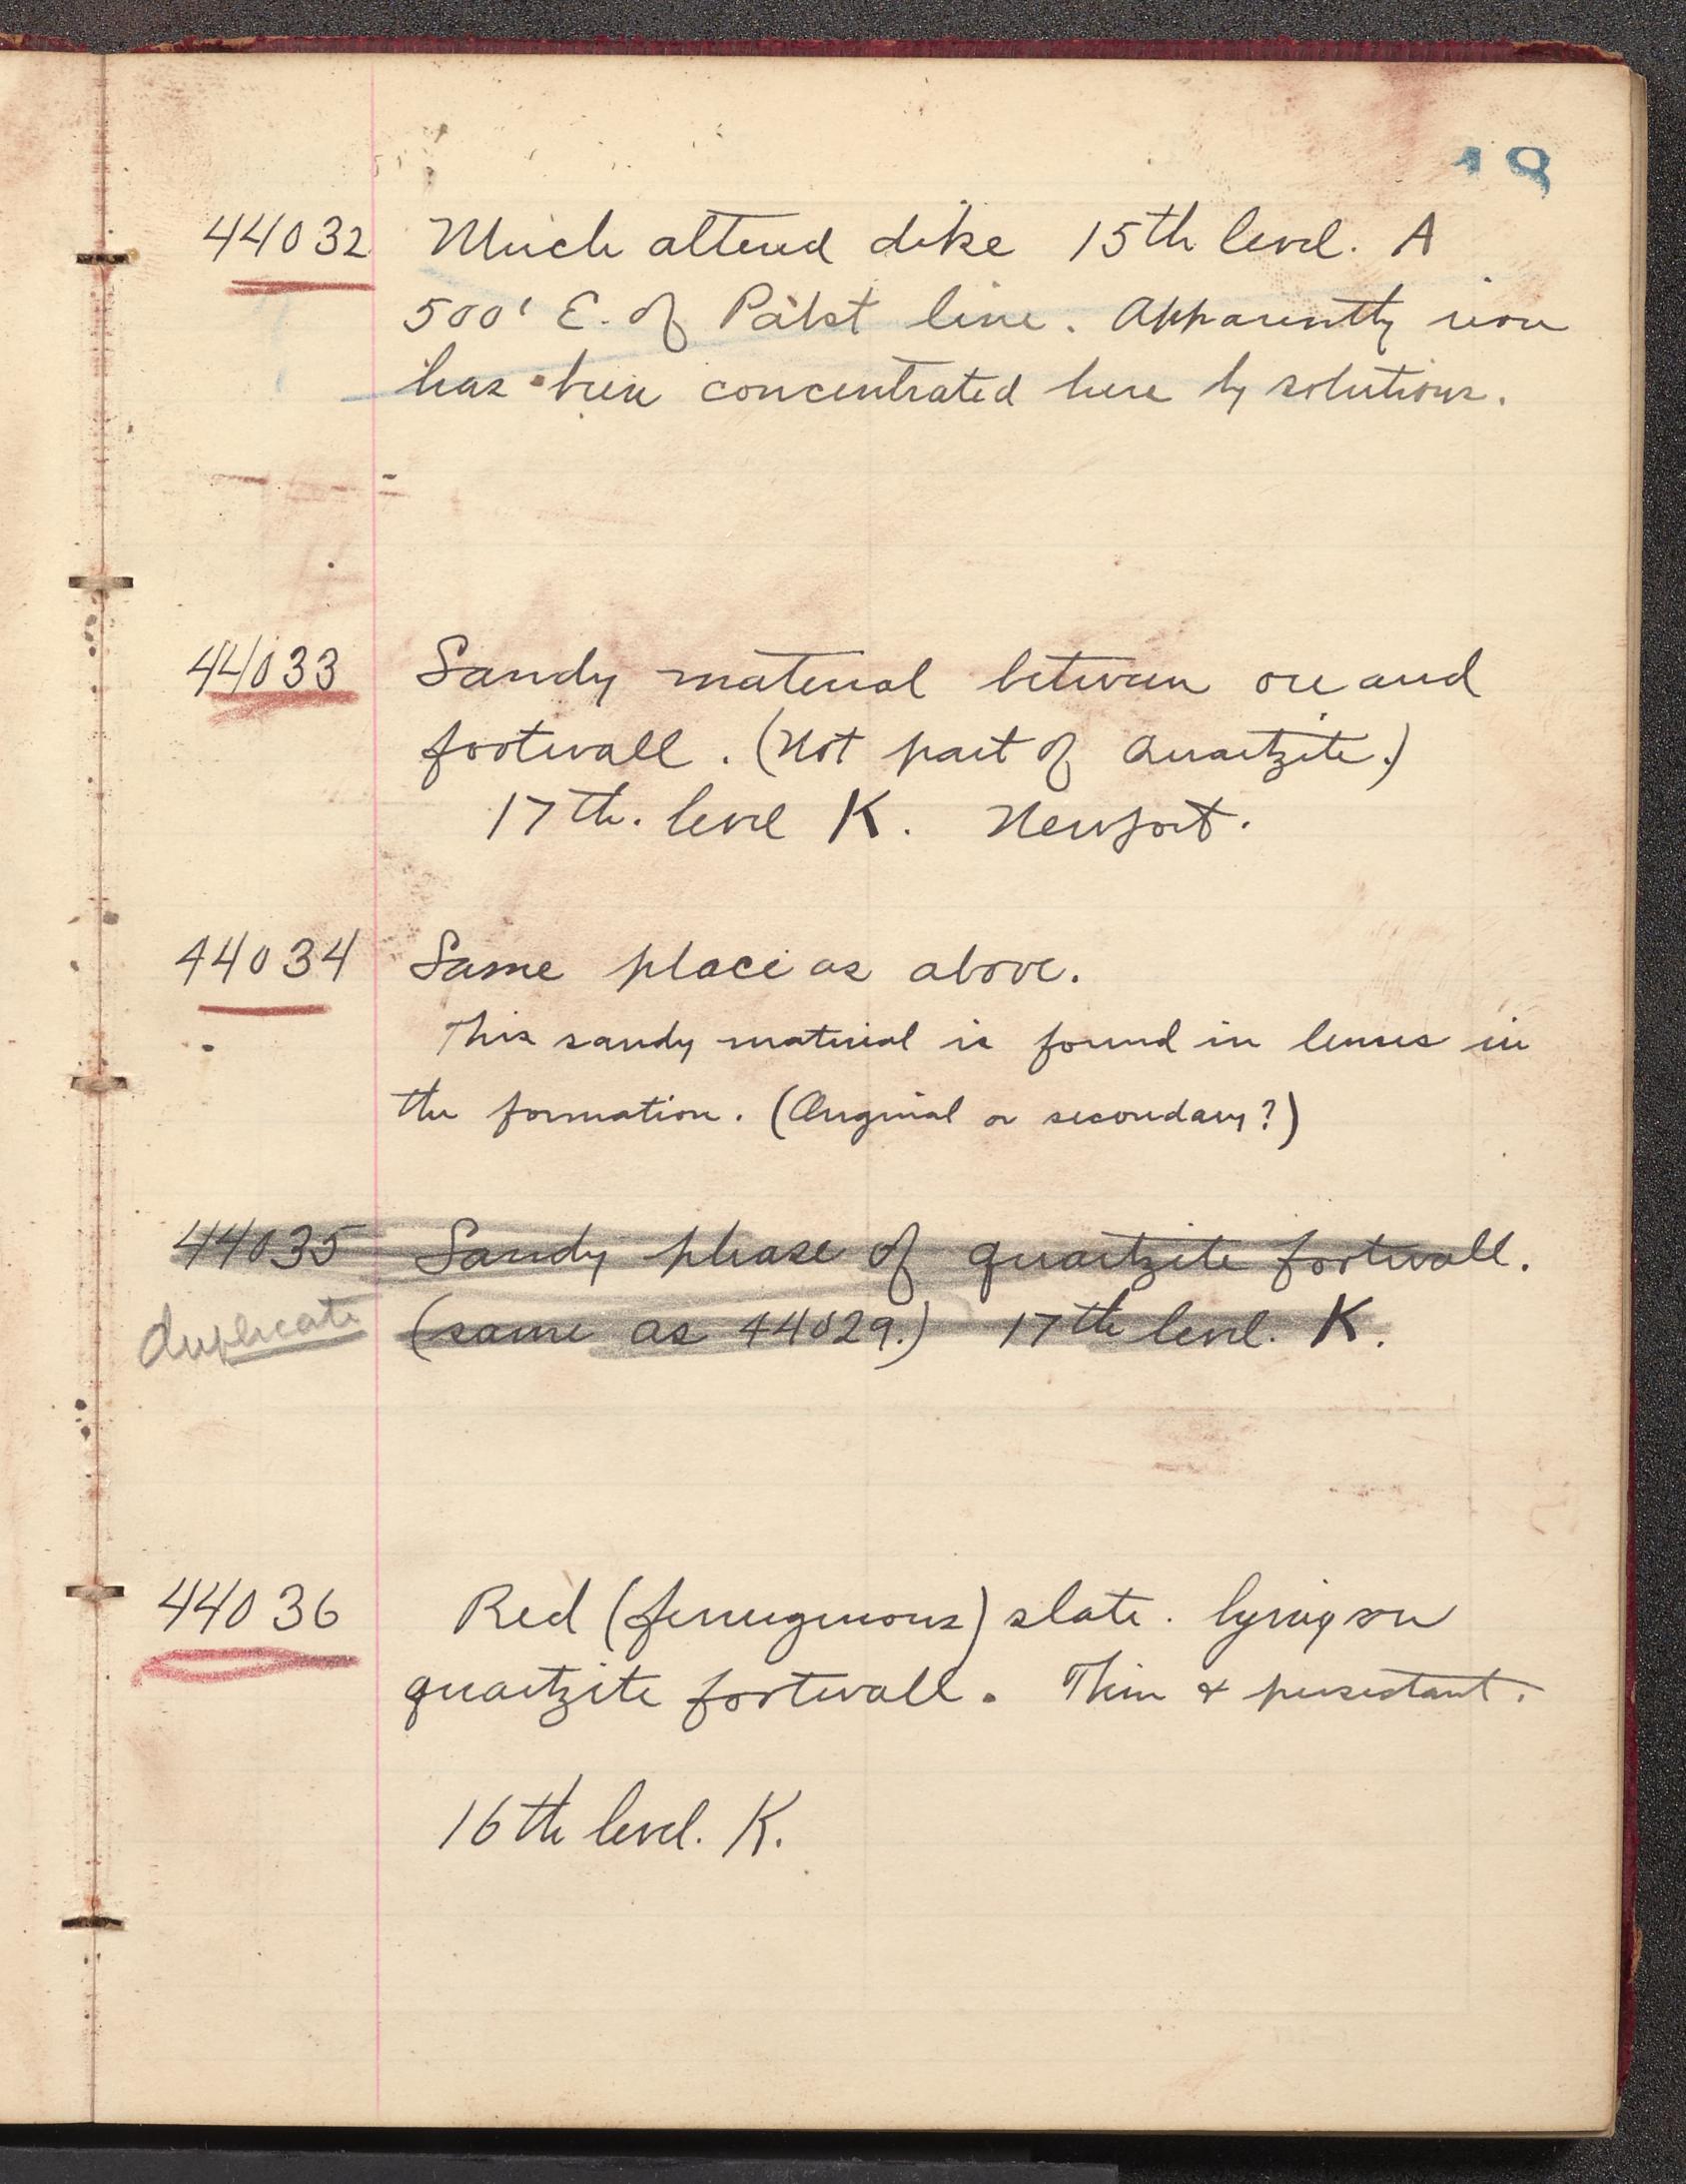 19
44032 Much altered dike 15th level. A
500' E. of Pabst line. Apparently iron
has been concentrated here by solutions.
44033 Sandy material between ore and
footwall. (Not part of Quartzite.)
17th. level K. Newport.
44034 Same place as above.
This sandy material is found in lenses in
the formation. (Original or secondary?)
44035 Sandy phase of quartzite footwall.
duplicate (same as 44029.) 17th level. K.
44036 Red (ferruginous) slate. lying on
quartzite footwall. Thin & persistant.
16th level. K.